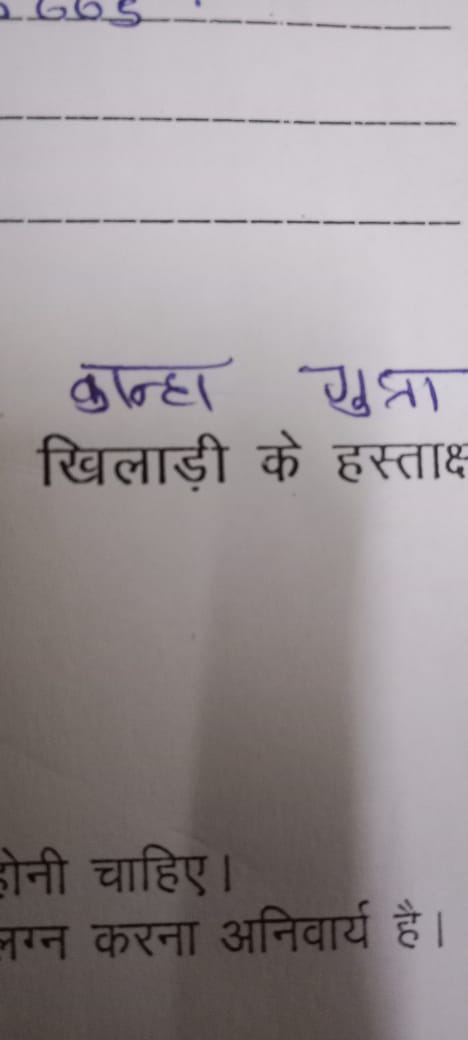 कान्हा
खिलाड़ी के हस्ताक्ष
होनी चाहिए।
लग्न करना अनिवार्य है।